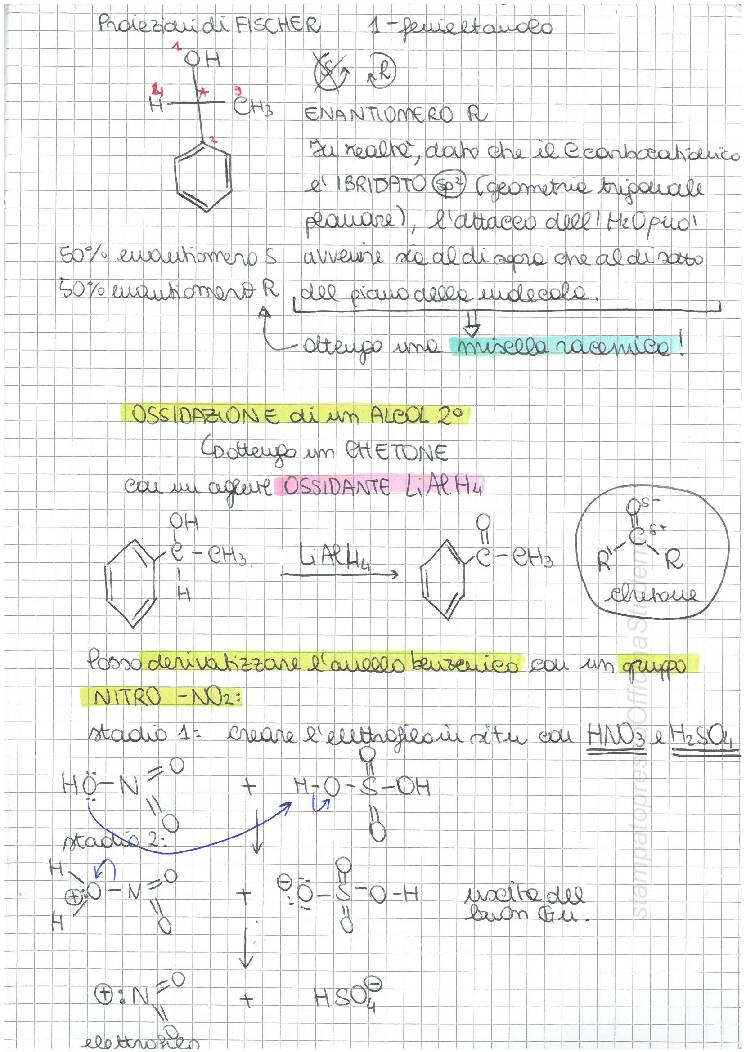 Proiezioni di FISCHER 1-feniletanolo
1
OH
S R
4 * 3
H CH3
2
ENANTIOMERO R
In realtà, dato che il C carbocationico
e' IBRIDATO sp2 (geometria trigonale
planare), l'attacco dell'H2O puo'
50% enantiomero S avvenire sia al di sopra che al di sotto
50% enantiomero R del piano della molecola.
ottengo una miscela racemica!
OSSIDAZIONE di un ALCOL 2°
ottengo un CHETONE
con un agente OSSIDANTE LiAlH4
OH O O δ-
C - CH3 LiAlH4 C - CH3 C δ+
H R' R
chetone
Posso derivatizzare l'anello benzenico con un gruppo
NITRO -NO2:
stadio 1: creare l'elettrofilo in situ con HNO3 e H2SO4
O O
HÖ-N + H-O-S-OH
O O
stadio 2:
H O O
⊕O-N + ⊖O-S-O-H uscita del
H O O buon G.u.
O
⊕:N + HSO4⊖
O
elettrofilo
stampatopressoOfficinaStudenti